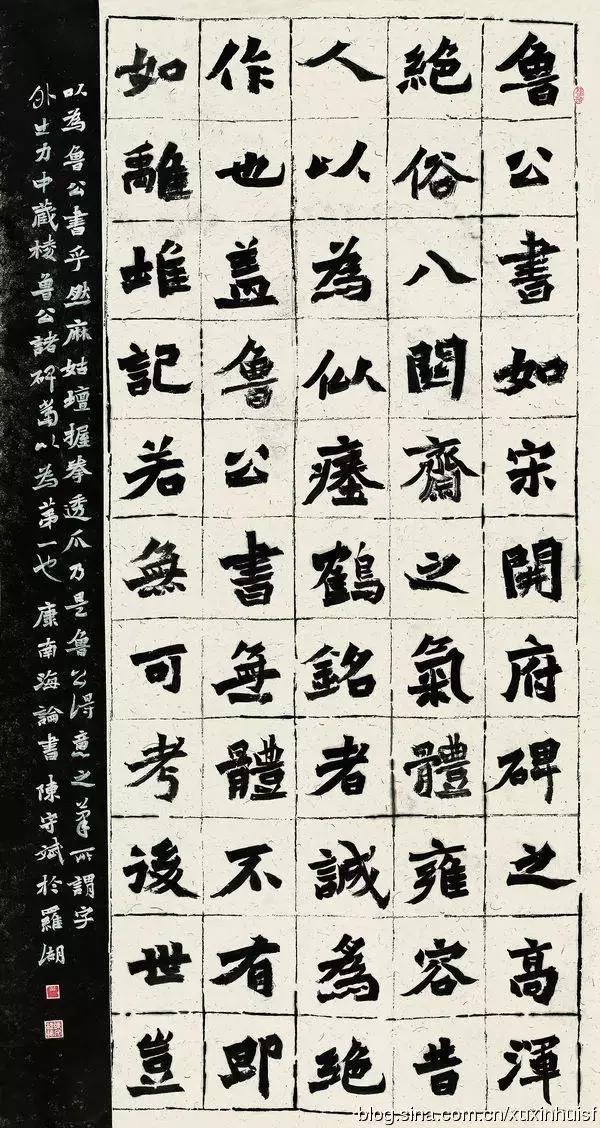 魯公書如宋開府碑之高渾
絕俗八關齋之氣體雍容昔
人以為似瘞鶴銘者誠為絕
作也蓋魯公書無體不有即
如離堆記若無可考後世豈
以為魯公書乎然麻姑壇握拳透爪乃是魯公得意之筆所謂字
外出力中藏棱魯公諸碑當以為第一也 康南海論書 陳守斌於羅湖
blog.sina.com.cn/xuxinhuisf